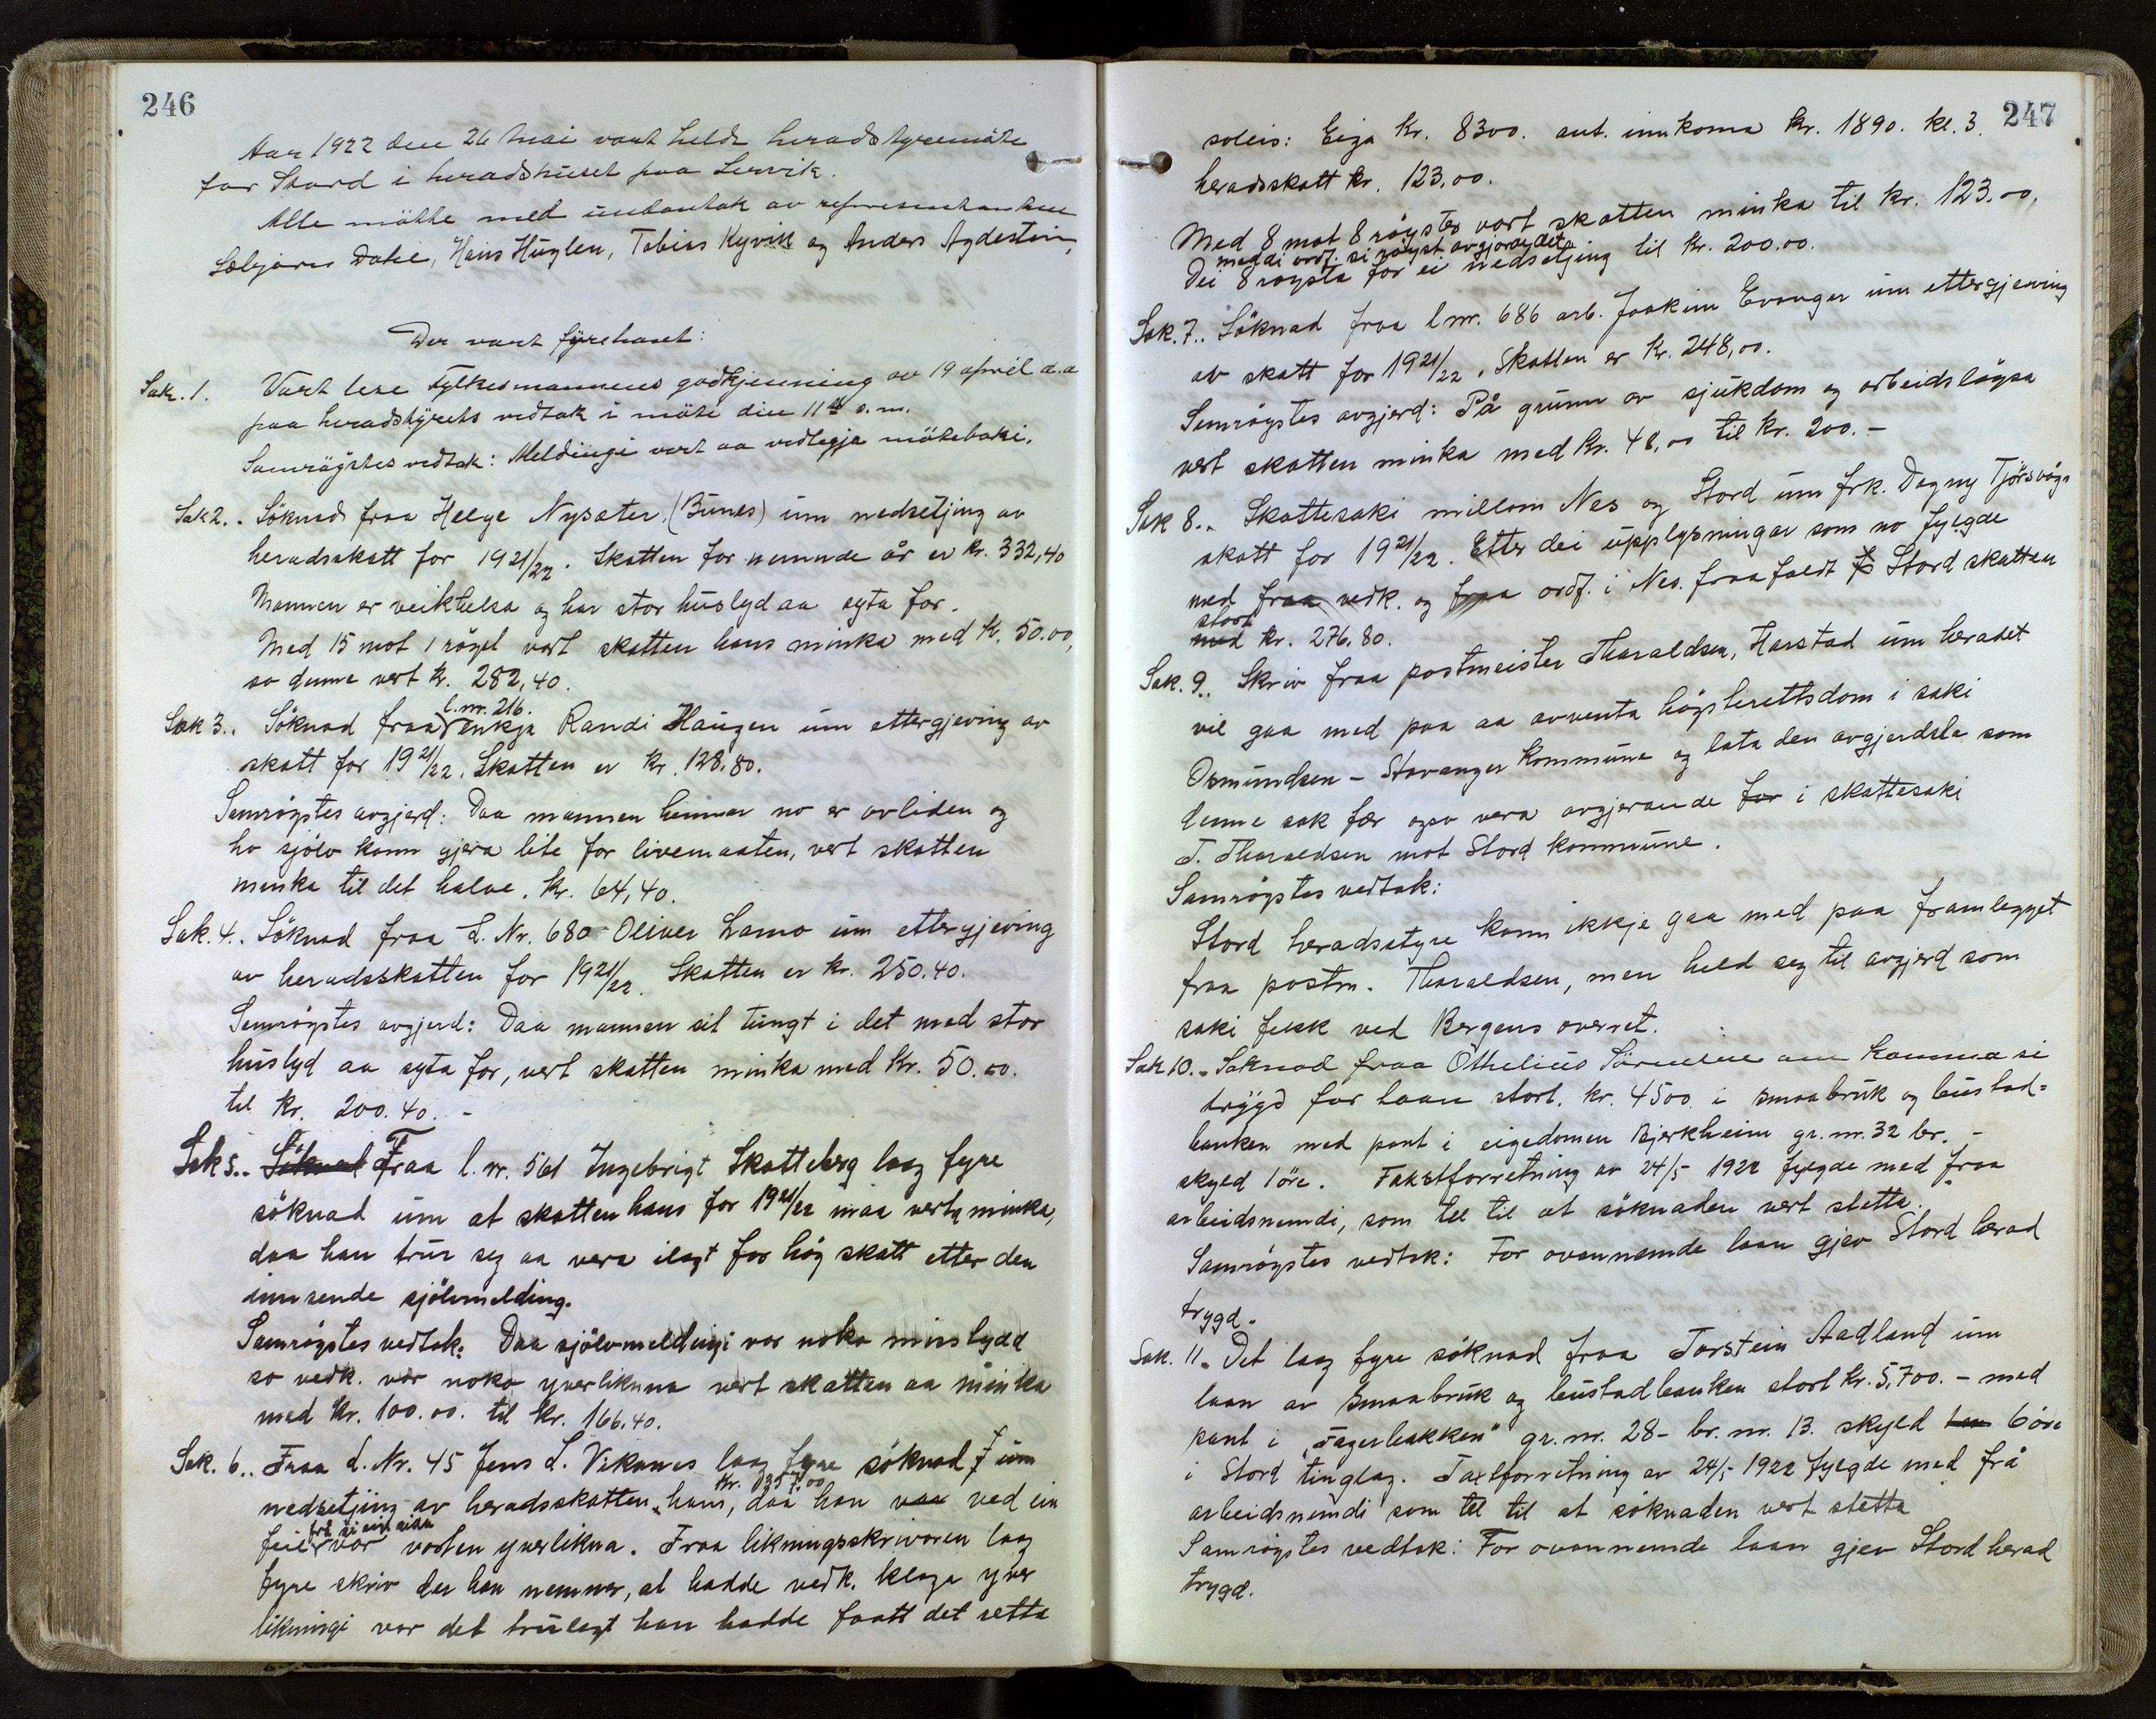 246
Aar 1922 den 26 Mai vart helde heradstyremöte
for Stord i heradshuset paa Lervik.
Alle mötte med undantak av representantene
Dahe, Hans Huglen, Tobias Kyvik og Anders Agdestein,
Der vart fyrehavt:
Sak. 1. Vart lese Fylkesmannens godkjenning av 19 april d.a
paa heradstyrets vedtak i möte den 11te s.m.
Samröystes vedtak: Meldingi vert aa vedlegja möteboki.
Sak 2. Söknad fraa Helge Nysæter (Bunes) um nedsetjing av
heradsskatt for 1921/22. Skatten for nemnde år er kr. 332,40
Mannen er veikhelsa og har stor huslyd aa syta for.
Med 15 mot 1 röyst vart skatten hans minka med kr. 50.00,
so denne vert kr. 282,40.
l. nr. 216.
Sak 3. Söknad fraa enkja Randi Haugen um ettergjeving av
skatt for 1921/22. Skatten er kr. 128,80.
Samröystes avgjerd: Daa mannen hennar no er avliden og
ho sjölv kann gjera lite for livemaaten, vert skatten
minka til det halve. Kr. 64,40.
Sak. 4. Söknad fraa L. Nr. 680 Oliver Lamo um ettergjeving
av heradsskatten for 1921/22. Skatten er kr. 250.40.
Samröystes avgjerd: Daa mannen sit tungt i det med stor
huslyd aa syta for, vert skatten minka med kr. 50.00.
til kr. 200.40. -
Sak 5. Söknad Fraa l. nr. 561 Ingebrigt Skatteberg laag fyre
söknad um at skatten hans for 1921/22 maa verta minka,
daa han trur seg aa vera ilagt for hög skatt etter den
innsende sjölvmelding.
Samröystes vedtak: Daa sjölvmeldingi var noko misstydd
so vedk. var noko yverlikna vert skatten aa minka
med kr. 100.00. til kr. 166.40.
Sak. 6. Fraa L. Nr. 45 Jens L. Vikanes laag fyre söknad um
kr. 357.00
nedsetjing av heradsskatten hans, daa han var ved ein
feil var vorten yverlikna. Fraa likningsskrivaren laag
fyre skriv der han nemner, at hadde vedk. klaga yver
likningi var det trulegt han hadde faatt det retta
247
soleis: Eiga kr. 8300. ant. innkoma kr. 1890. kl. 3.
heradsskatt kr. 123,00.
Med 8 mot 8 röyster vart skatten minka til kr. 123.00.
med di ordf. si röyst avgjorde det
Dei 8 röysta for ei nedsetjing til kr. 200.00.
Sak. 7. Söknad fraa l nr. 686 arb. Joakim Evanger um ettergjeving
av skatt for 1921/22. Skatten er kr. 248,00.
Samröystes avgjerd: På grunn av sjukdom og arbeidslöysa
vert skatten minka med kr. 48,00 til kr. 200.-
Sak 8. Skattesaki millom Nes og Stord um frk. Dagny Tjörsvågs
skatt for 1921/22. Etter dei upplysningar som no fylgde
med fraa vedk. og fraa ordf. i Nes. fraafaldt Stord skatten
stort
med kr. 276.80.
Sak. 9. Skriv fraa postmeister Tharaldsen, Harstad um heradet
vil gaa med paa aa avventa högsterettsdom i saki
Osmundsen - Stavanger Kommune og lata den avgjerdsla som
denne sak fær ogso vera avgjerande for i skattesaki
T. Tharaldsen mot Stord kommune.
Samröystes vedtak:
Stord heradsstyre kann ikkje gaa med paa framlegget
fraa postm. Tharaldsen, men held seg til avgjerd som
saki fekk ved Bergens overret.
Sak 10. Söknad fraa Othelius om kommunesi
trygd for laan stort. kr. 4500 i smaabruk og bustad=
banken med pant i eigedomen Bjerkheim gr. nr. 32 br. -
skyld 1 öre. Takstforretning av 24/5 1922 fylgde med fraa
arbeidsnemndi, som tel til at söknaden vert stetta.
Samröystes vedtak: For ovannemnde laan gjev Stord herad
trygd.
Sak. 11. Det laag fyre söknad fraa Torstein Aadland um
laan av smaabruk og bustadbanken stort kr. 5,700. - med
pant i "Fagerbakken" gr. nr. 28 - br. nr. 13. skyld 6 öre
i Stord tinglag. Taxtforretning av 24/5 1922 fylgde med frå
arbeidsnemdi som tel til at söknaden vert stetta
Samröystes vedtak: For ovannemnde laan gjev Stord herad
trygd.